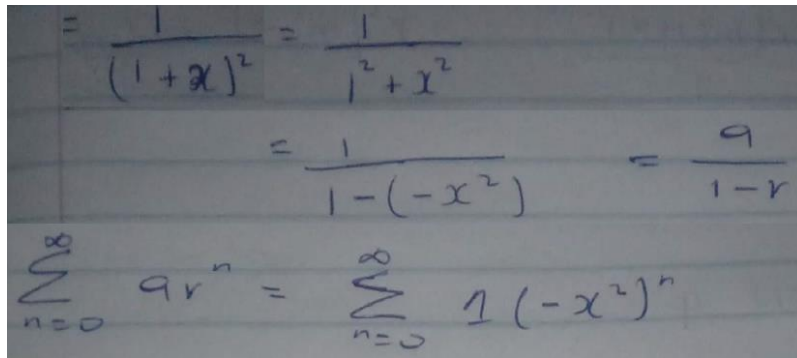 = 1/(1+x)² = 1/1²+x²
= 1/1-(-x²) = a/1-r
∞∑n=0 arⁿ = ∞∑n=0 1(-x²)ⁿ